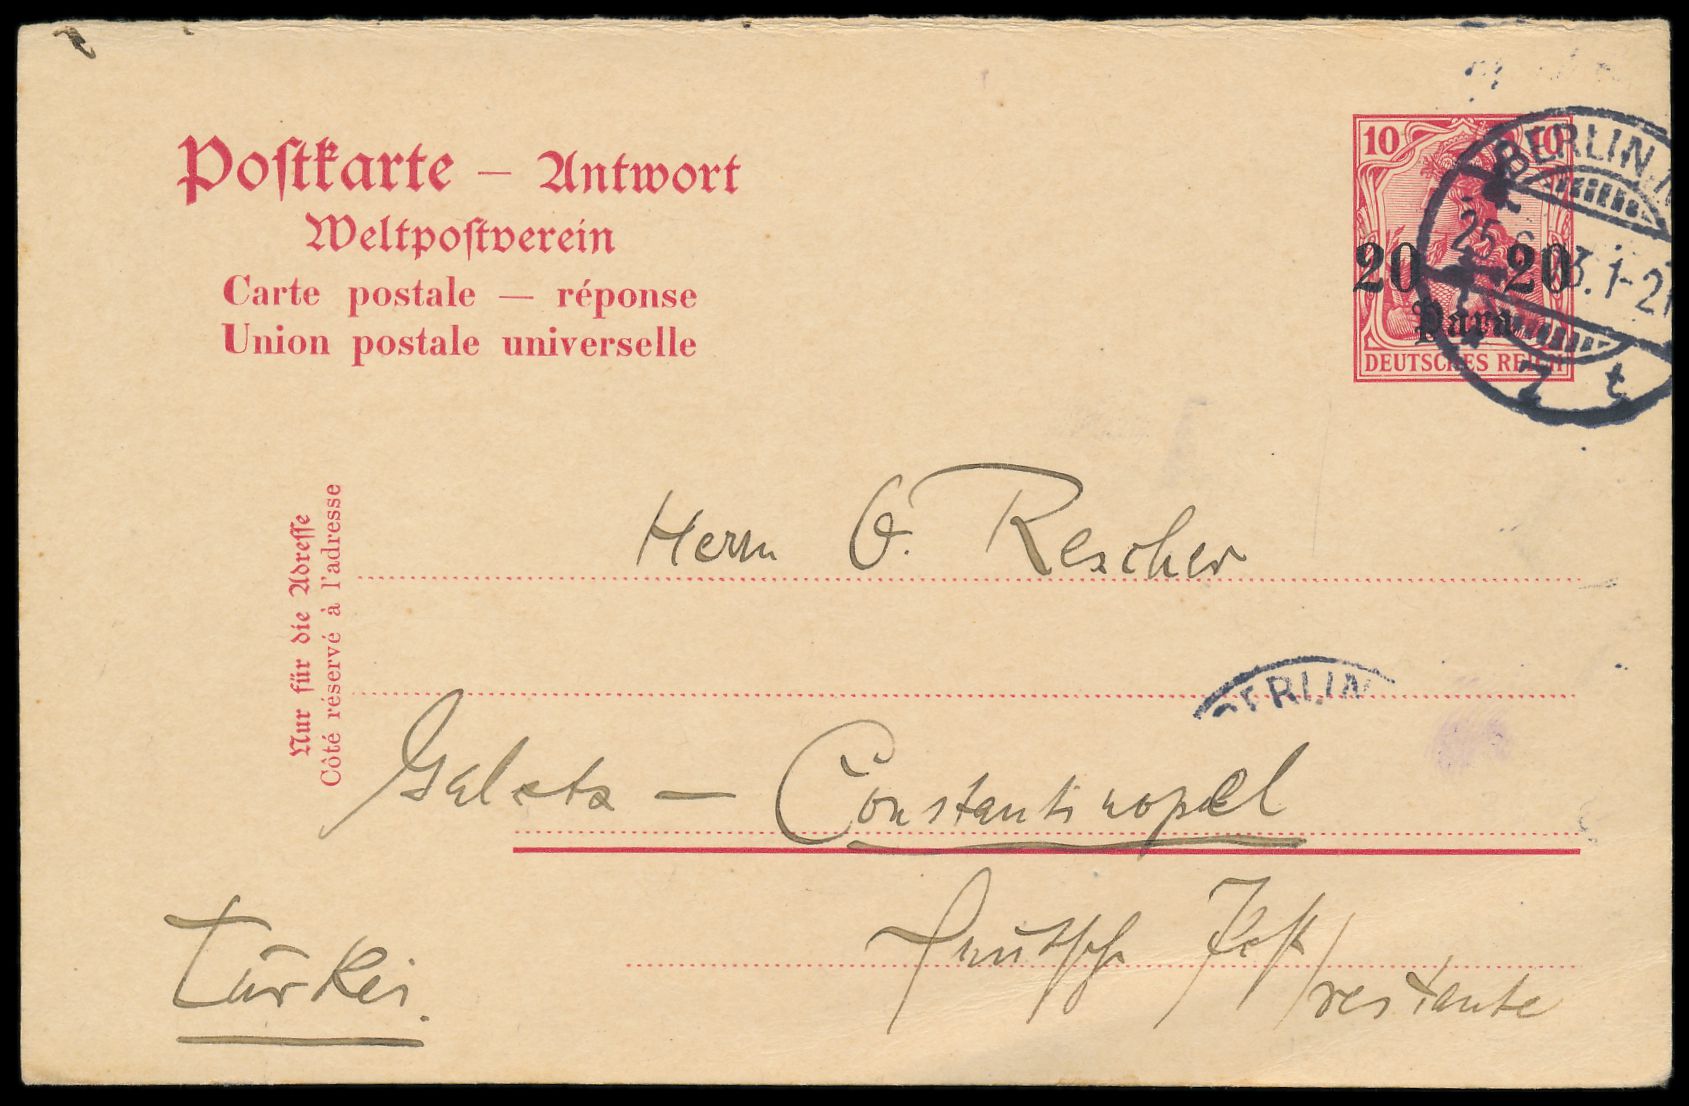 Postkarte – Antwort
Weltpostverein
Carte postale — réponse
Union postale universelle
10 10
20 20
Para
DEUTSCHES REICH
BERLIN
25 3. 1-2
Nur für die Adresse
Côté réservé à l'adresse
Herrn O. Rescher
BERLIN
Galata – Constantinopel
Deutsche Post / restante
Türkei.